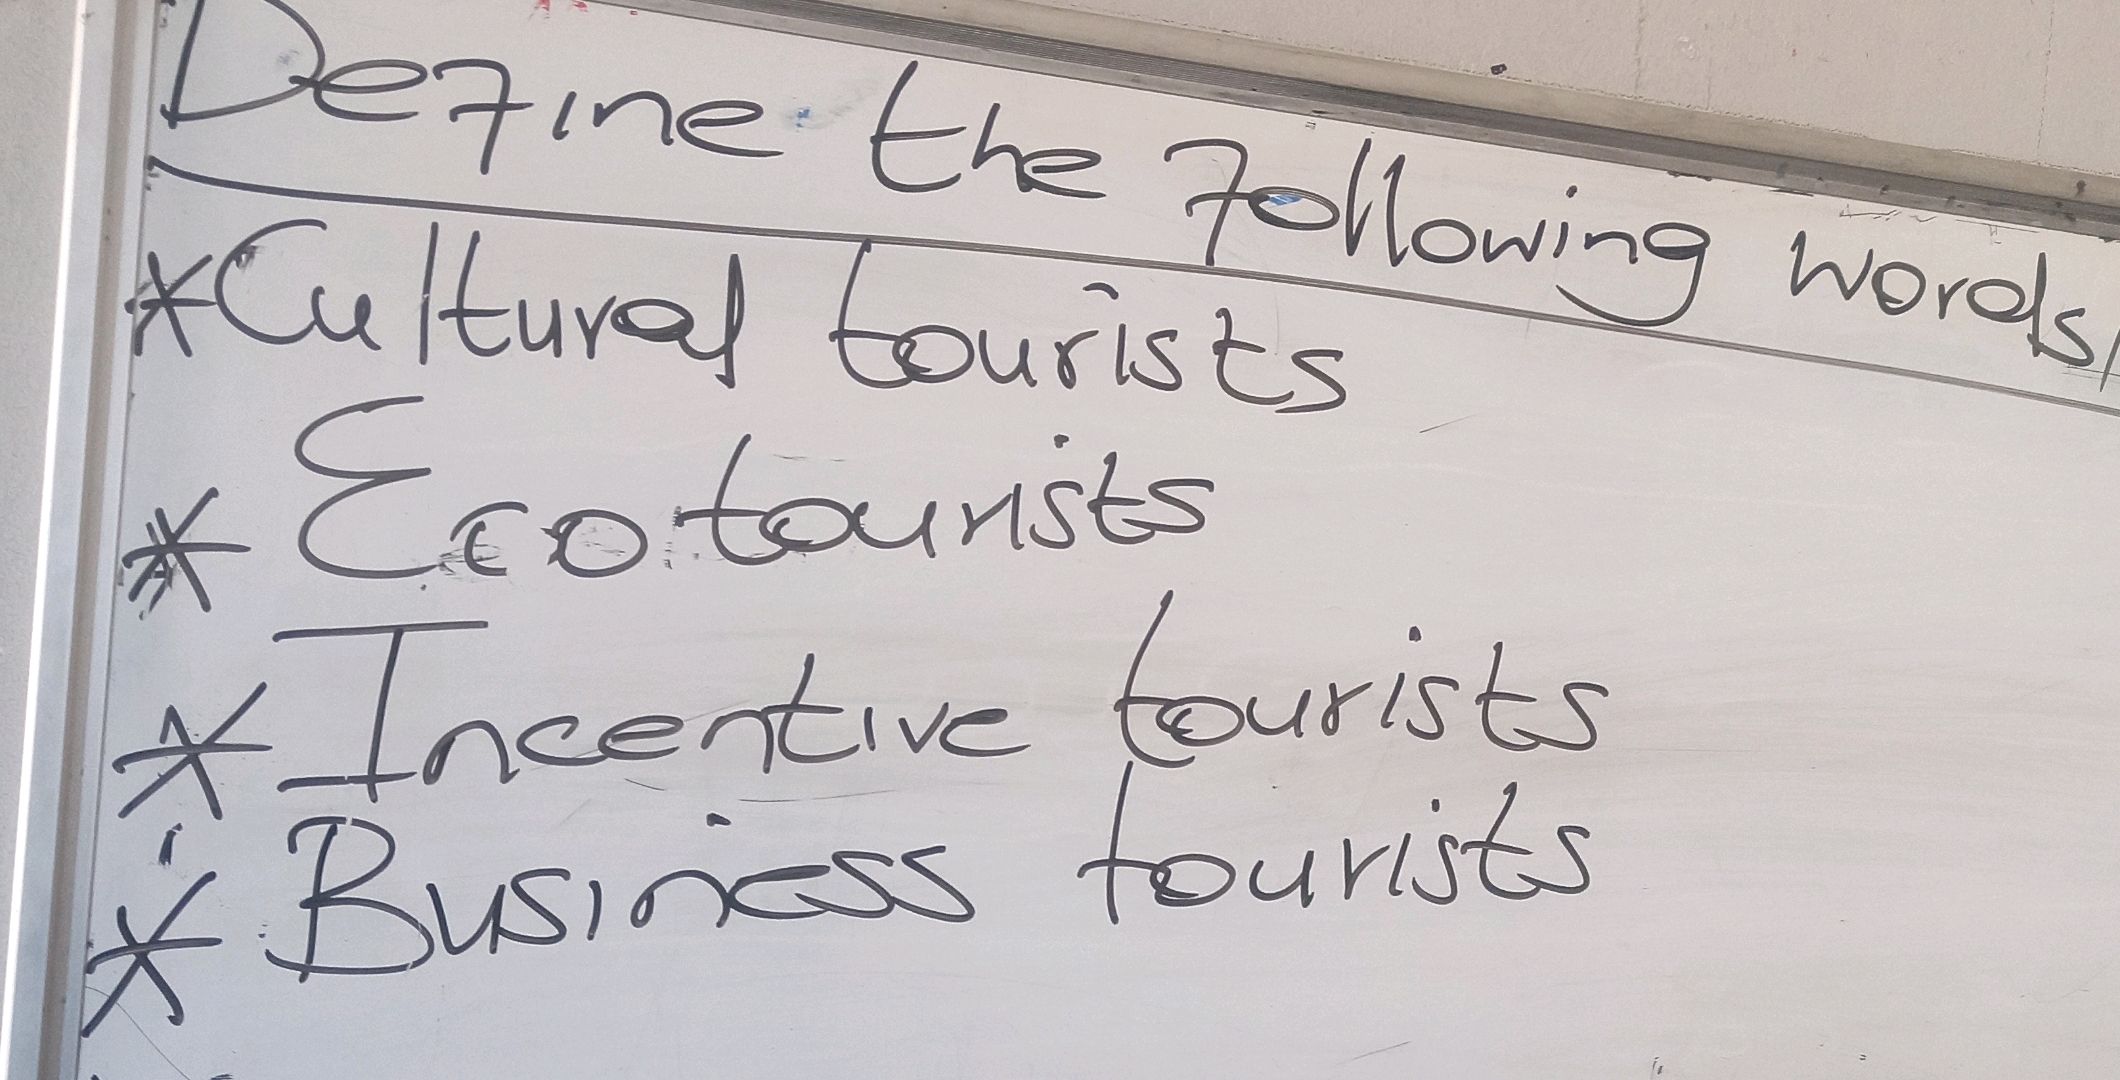 Define the following words
* Cultural tourists
* Ecotourists
* Incentive tourists
* Business tourists